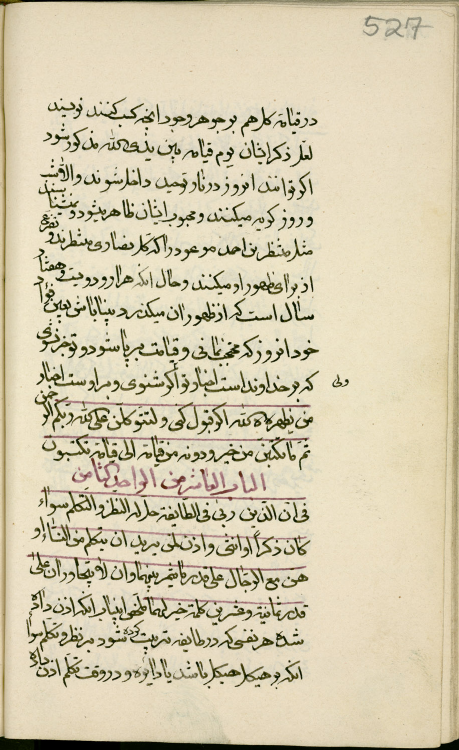 527
در قیامة کل هم بر جوهر وجود آنچه کسب کنند نویسند
لعل ذکر ایشان یوم قیامة بین یدی الله مذکور شود
اگر توانند انروز در نار توحید داخل شوند والا شب
و روز گریه میکنند و محبوب ایشان ظاهر میشود و نمیشناسند
مثل منتظرین احمد موعود را که کل نصاری منتظرند و تضرع
از برای ظهور او میکنند و حال آنکه هزار و دویست و هفتاد
سال است که از ظهور ان میگذرد بینا باش بعین فؤاد
خود انروز که محض ثانی و قیامت برپا شود و تو جز نشوی
که بر خداوند است اخبار تو اگر شنوی و مر او است اختیار
ولی
من یظهره الله اگر قبول کنی ولتتوکلن علی الله ربکم الرحمن
ثم ما تکتبن من خیر ودونه من قیامة الی قیامة تکتسبون
الباب العاشر من الواحد الثامن
فی ان الذین ربی فی الطایفة حل له النظر والتکلم سواء
کان ذکرا او انثی واذن لمن یرید ان یتکلم من النساء او
هن مع الرجال علی قدر ما یثمر بینهما وان لا یتجاوزان علی
قدر ثمانیة وعشرین کلمة خیر لهما ملخص این باب آنکه اذن داده
شده هر نفسی که در طایفه تربیت کرده شود بر نظر و تکلم سواء
آنکه بر هیکل هیکل باشد یا دایره و در وقت تکلم اذن داده